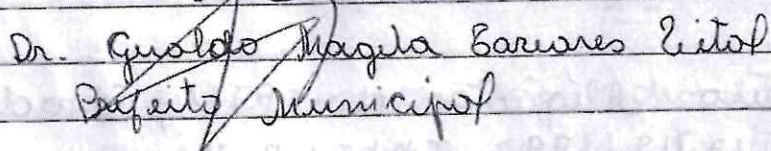 Dr. Geraldo Magela Tavares Vital
Prefeito Municipal